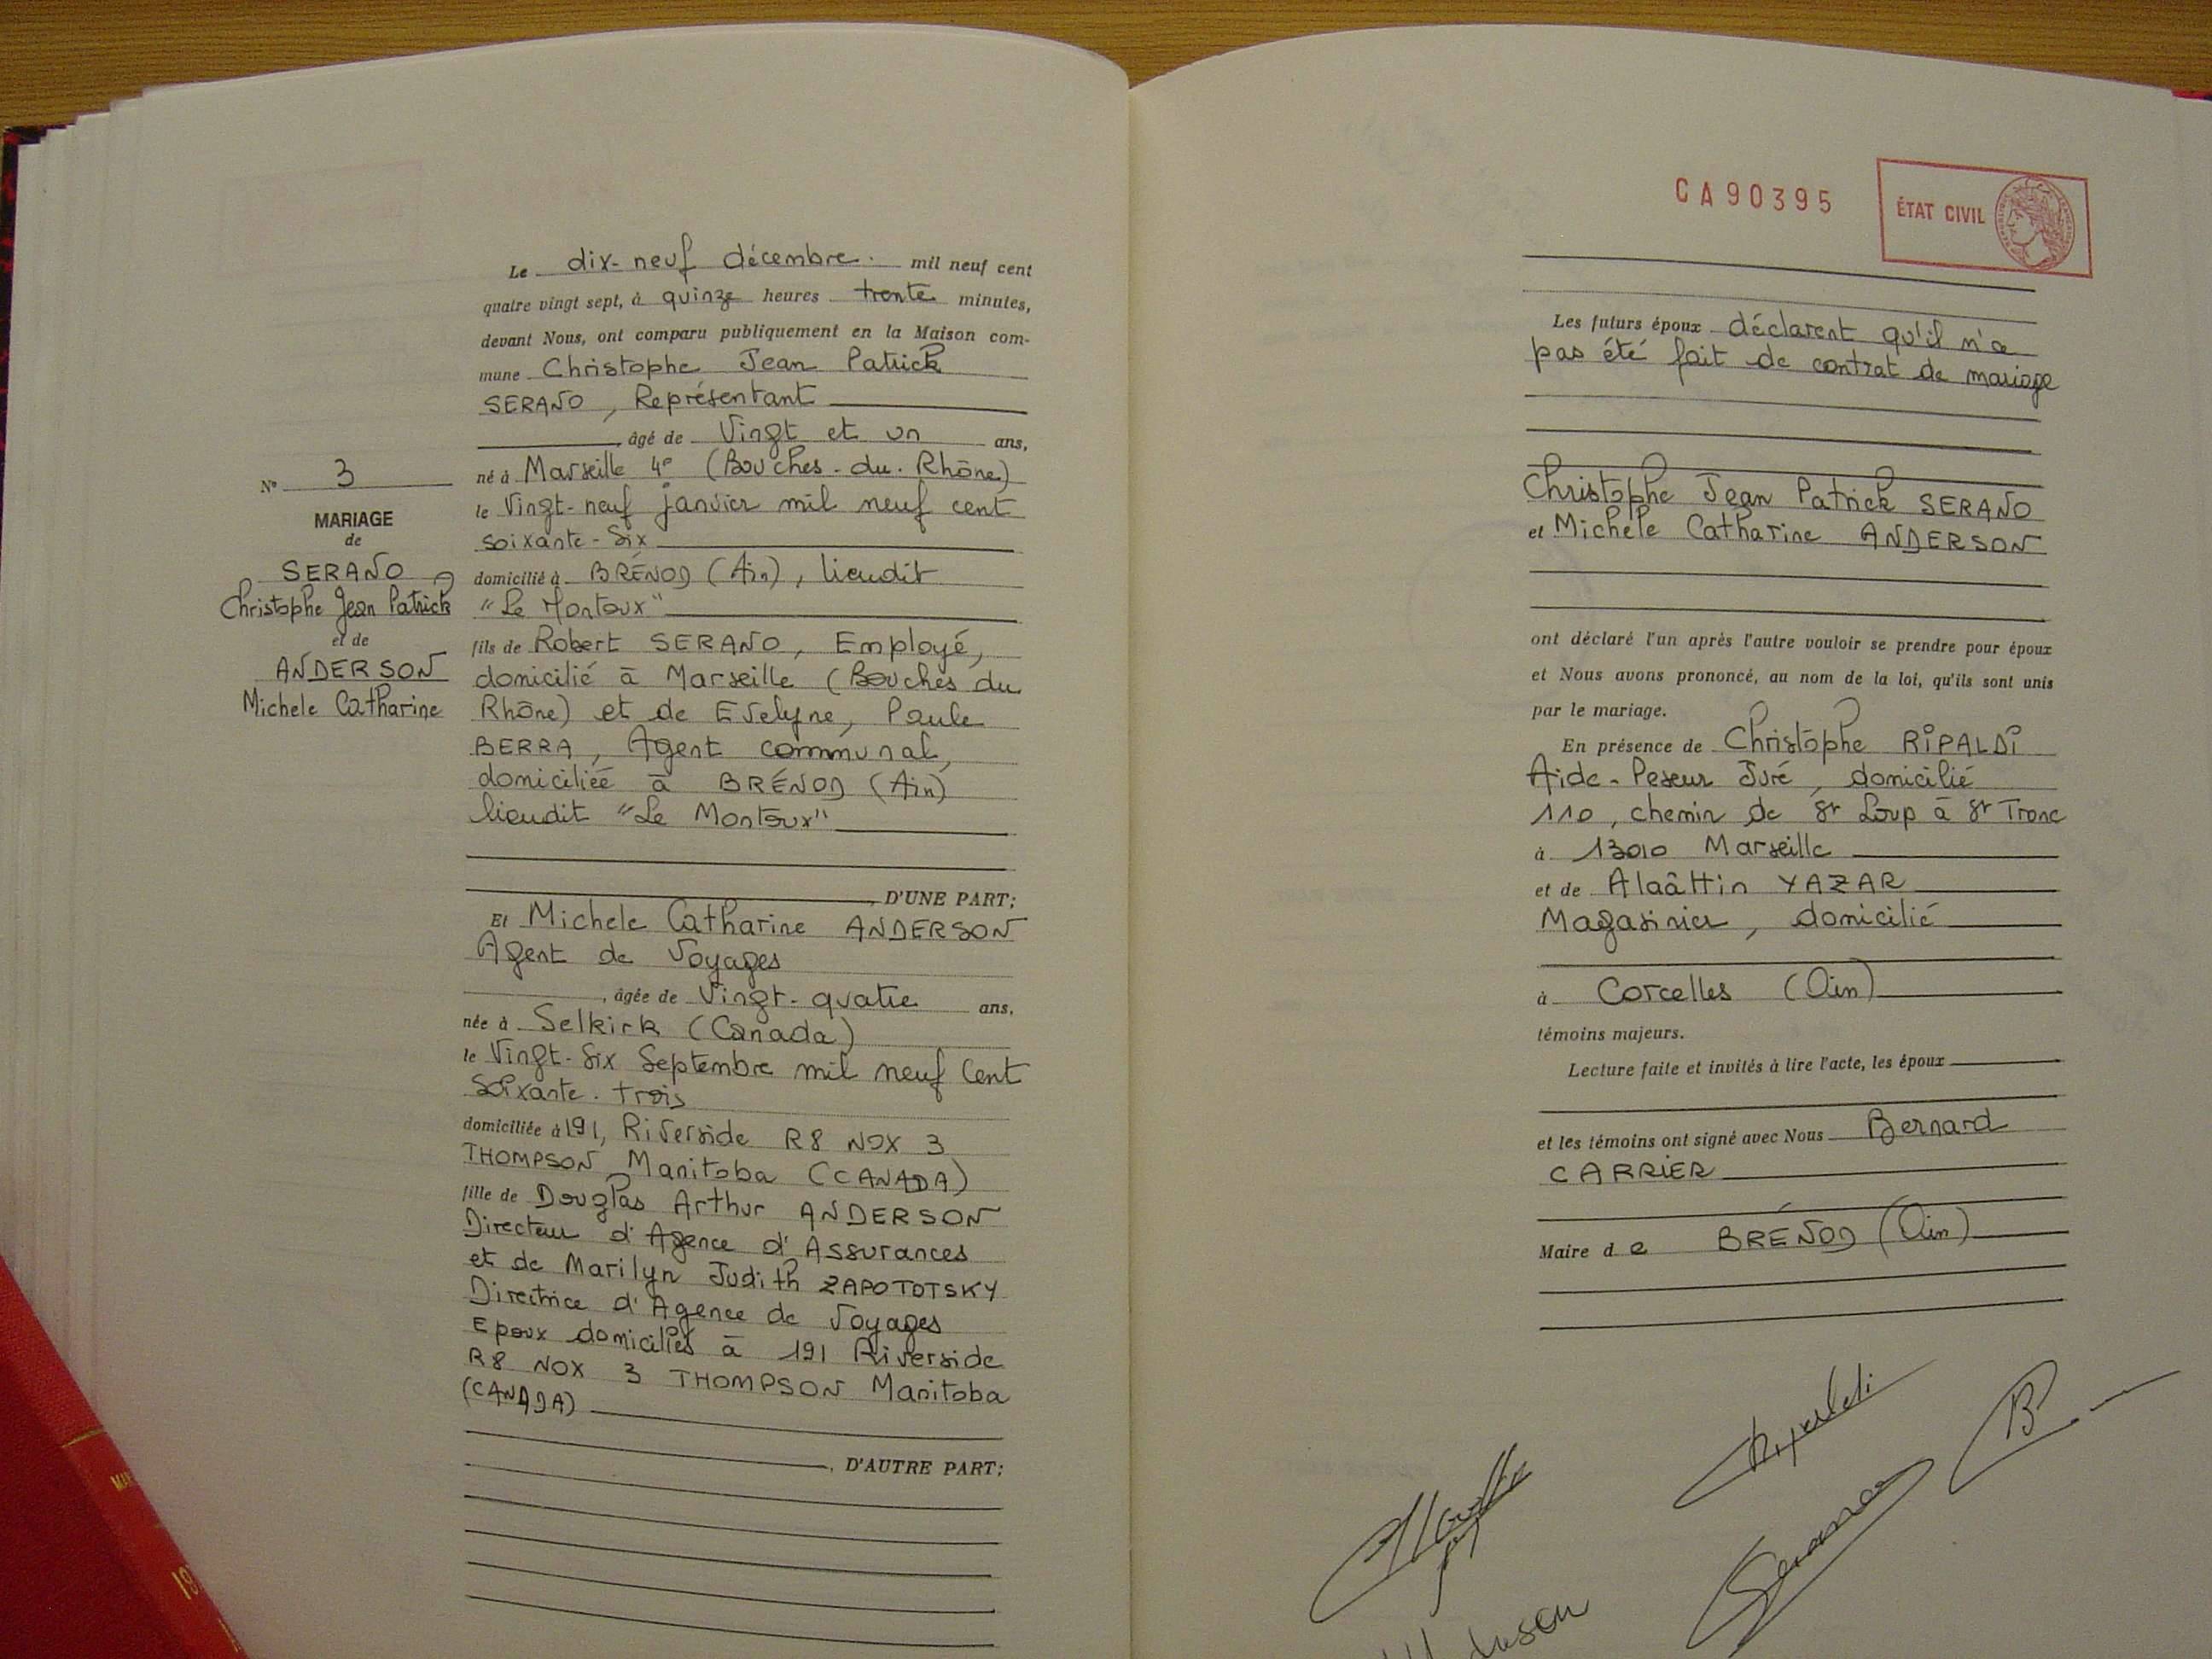 Le dix-neuf décembre. mil neuf cent
quatre vingt sept, à quinze heures trente minutes,
devant Nous, ont comparu publiquement en la Maison com-
mune Christophe Jean Patrick
SERANO, Représentant
, âgé de Vingt et un ans,
né à Marseille 4e (Bouches-du-Rhône)
le Vingt-neuf janvier mil neuf cent
soixante-Six
domicilié à BRÉNOD (Ain), lieudit
"Le Montoux"
fils de Robert SERANO, Employé,
domicilié à Marseille (Bouches du
Rhône) et de Evelyne, Paule
BERRA, Agent communal,
domiciliée à BRÉNOD (Ain)
lieudit "Le Montoux"
, D'UNE PART;
Et Michele Catharine ANDERSON
Agent de Voyages
, âgée de Vingt-quatre ans,
née à Selkirk (Canada)
le Vingt-Six Septembre mil neuf Cent
Soixante-trois
domiciliée à 191, Riverside R8 NOX 3
THOMPSON Manitoba (CANADA)
fille de Douglas Arthur ANDERSON
Directeur d'Agence d'Assurances
et de Marilyn Judith ZAPOTOTSKY
Directrice d'Agence de Voyages
Epoux domiciliés à 191 Riverside
R8 NOX 3 THOMPSON Manitoba
(CANADA)
, D'AUTRE PART;
N° 3
MARIAGE
de
SERANO
Christophe Jean Patrick
et de
ANDERSON
Michele Catharine
CA90395
ÉTAT CIVIL
Les futurs époux déclarent qu'il n'a
pas été fait de contrat de mariage
Christophe Jean Patrick SERANO
et Michele Catharine ANDERSON
ont déclaré l'un après l'autre vouloir se prendre pour époux
et Nous avons prononcé, au nom de la loi, qu'ils sont unis
par le mariage.
En présence de Christophe RIPALDI
Aide-Peseur Juré, domicilié
110, chemin de St Loup à St Tronc
à 13010 Marseille
et de Alaâttin YAZAR
Magasinier, domicilié
à Corcelles (Ain)
témoins majeurs.
Lecture faite et invités à lire l'acte, les époux
et les témoins ont signé avec Nous Bernard
CARRIER
Maire de BRÉNOD (Ain)